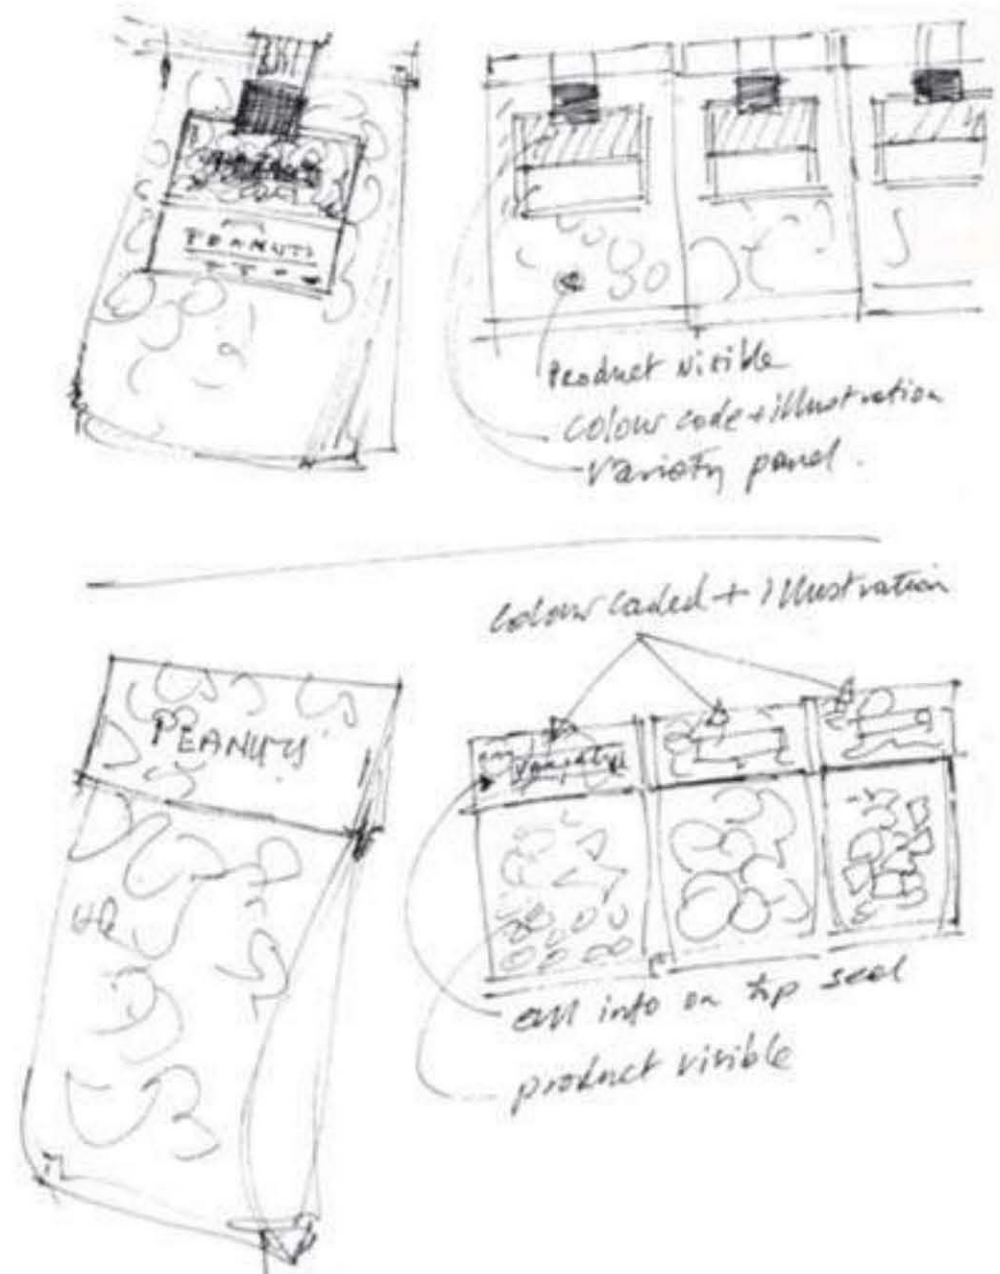 PEANUTS
Product visible
colour code + illustration
variety panel.
colour coded + illustration
PEANUTS
Variety
all info on top seal
product visible